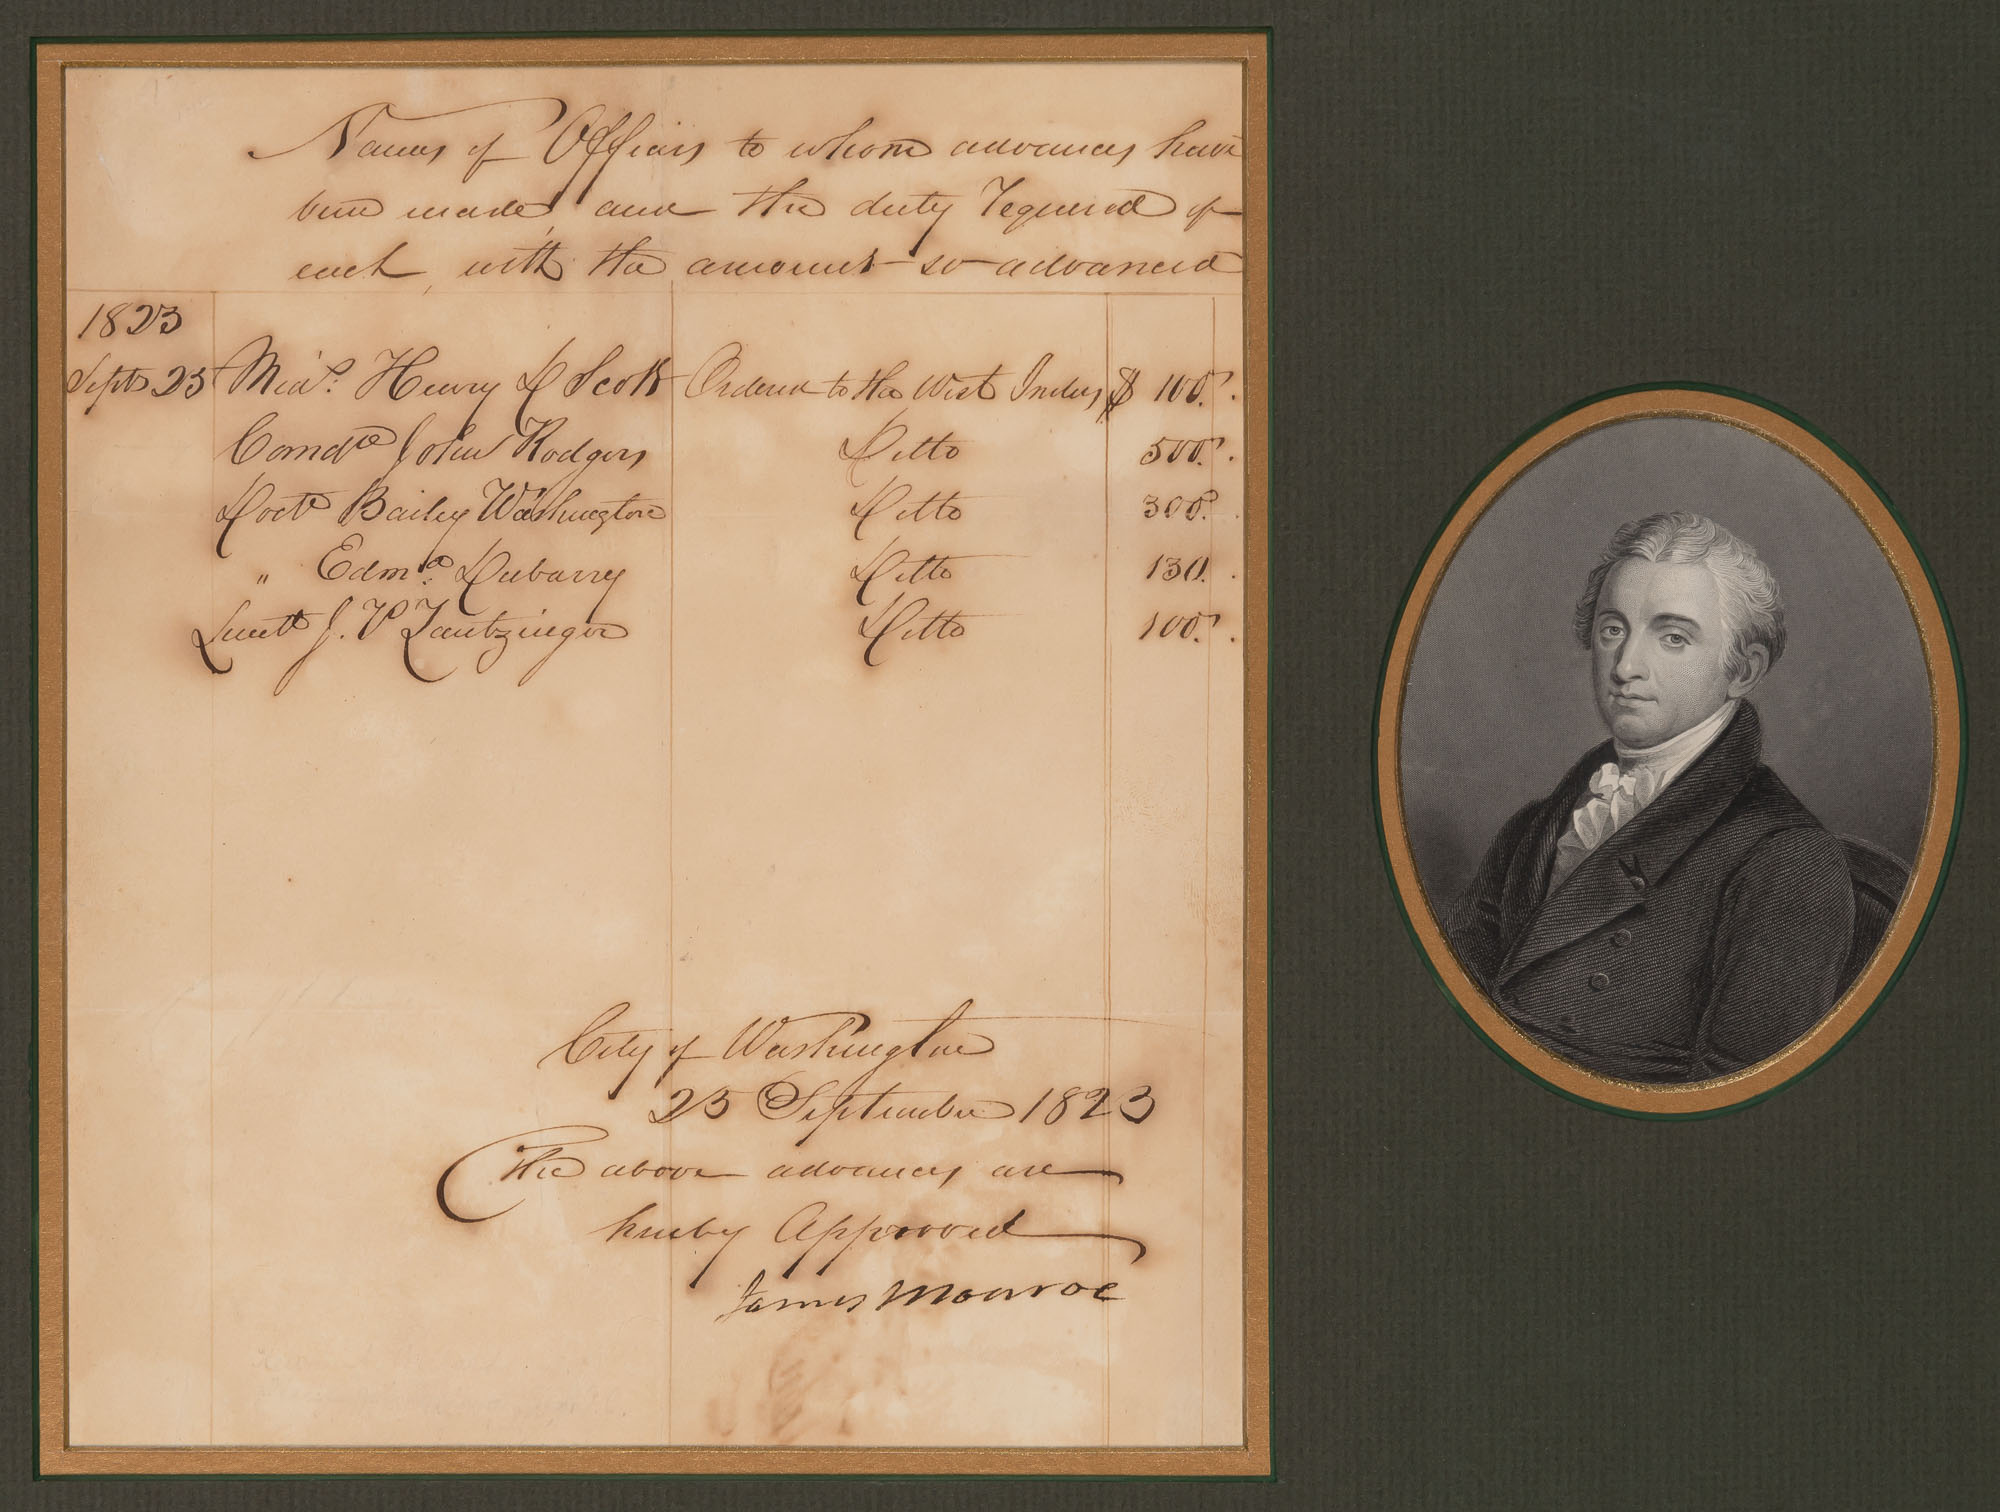 Names of Officers to whom advances have
been made, and the duty required of
each, with the amount so advanced
1823
Septr 23 Midn. Henry D Scott Ordered to the West Indies $ 100.
Comdre John Rodgers Ditto 500.
Doctr Bailey Washington Ditto 300.
" Edmd. Dubarry Ditto 130.
Lieutt J. P Zantzinger Ditto 100.
City of Washington
23 September 1823
The above advances are
hereby Approved
James Monroe